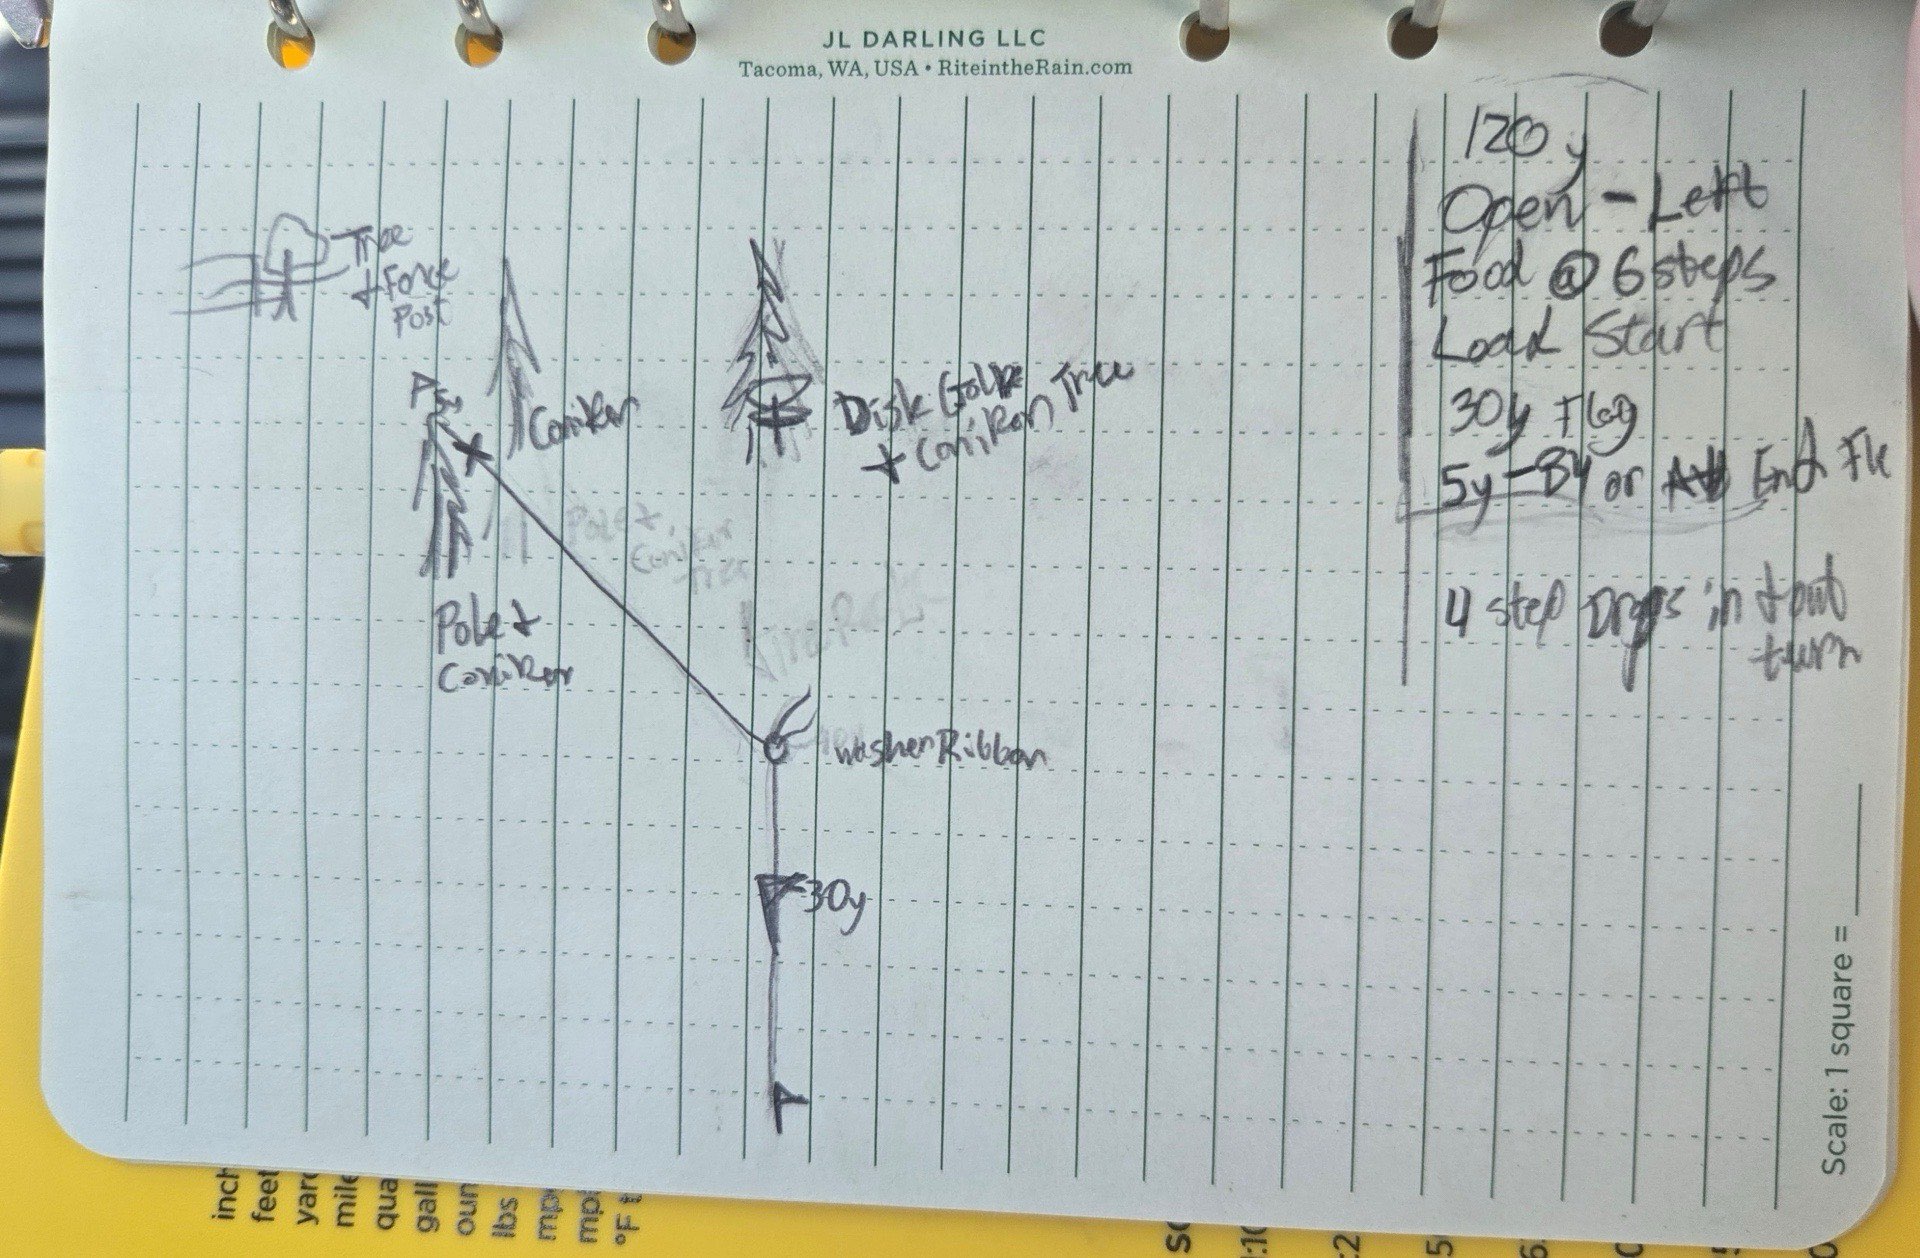 JL DARLING LLC
Tacoma, WA, USA • RiteintheRain.com
120 y
Open - Left
Food @ 6 steps
Load Start
30y Flag
5y - 8y or End
4 step Drops in + out
turn
Tree
+ Fence
Post
Conifer
Disk Golf
+ Conifer Tree
Pole +
Conifer
Tree
Pole +
Conifer
Washer Ribbon
30y
Scale: 1 square =
inch
feet
yard
mile
qua
gall
oun
lbs
mp
mp
°F t